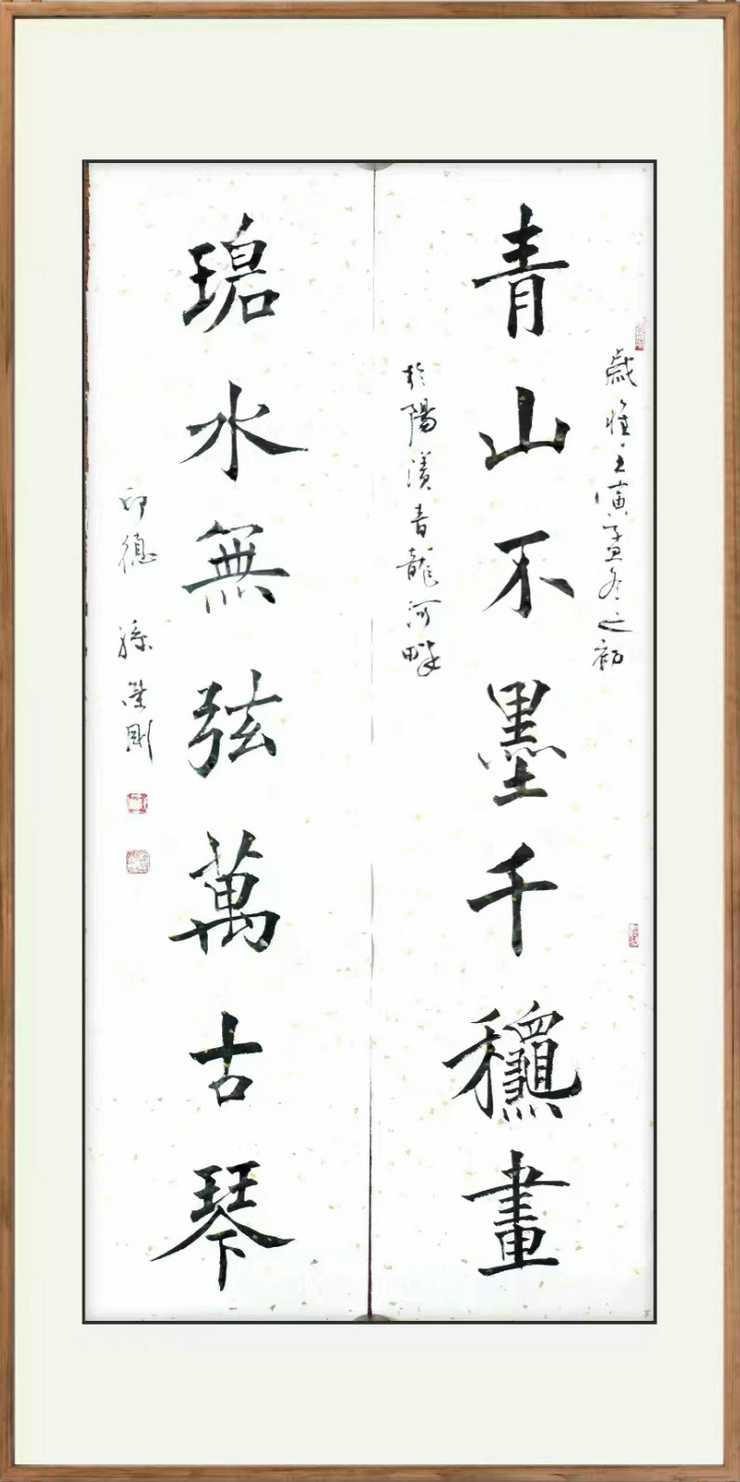 青山不墨千龝畫
歲惟壬寅孟冬之初
於陽漬青龍河畔
碧水無弦萬古琴
印德 孫榮剛